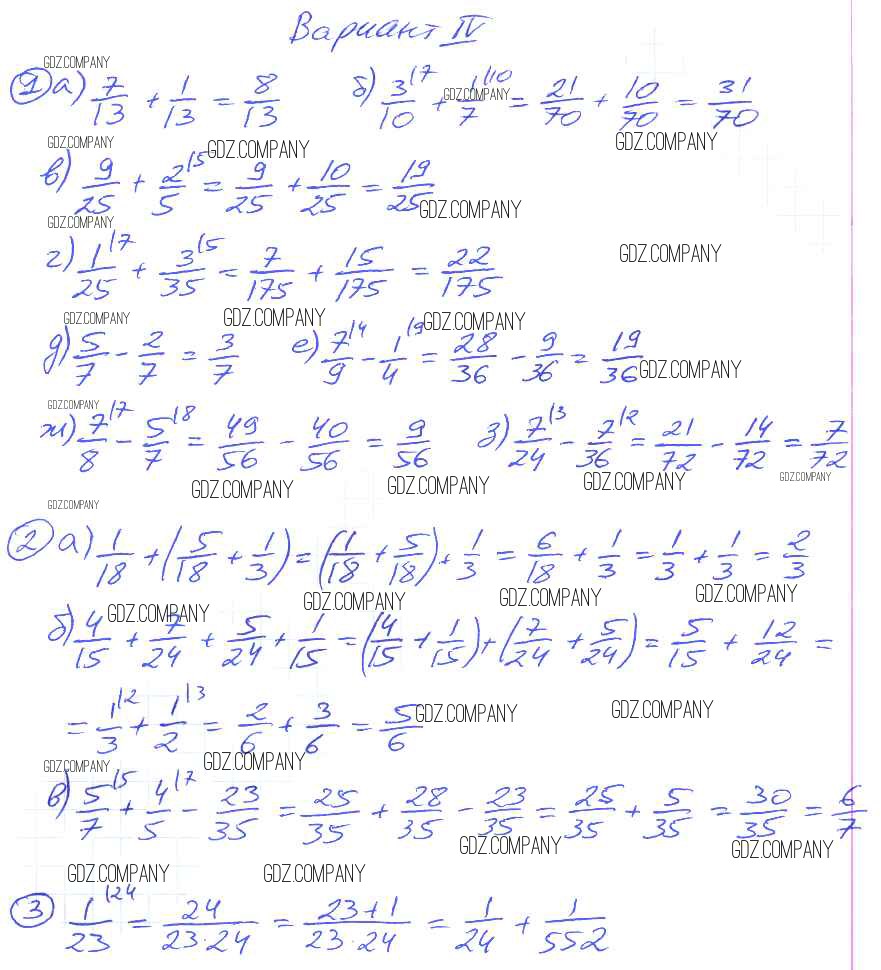 Вариант IV
GDZ.COMPANY
1 а) 7/13 + 1/13 = 8/13 б) 3/10 |7 + 1/7 |10 = 21/70 + 10/70 = 31/70
GDZ.COMPANY
GDZ.COMPANY GDZ.COMPANY GDZ.COMPANY
в) 9/25 + 2/5 |5 = 9/25 + 10/25 = 19/25
GDZ.COMPANY
GDZ.COMPANY
г) 1/25 |7 + 3/35 |5 = 7/175 + 15/175 = 22/175
GDZ.COMPANY
GDZ.COMPANY GDZ.COMPANY GDZ.COMPANY
д) 5/7 - 2/7 = 3/7 е) 7/9 |4 - 1/4 |9 = 28/36 - 9/36 = 19/36
GDZ.COMPANY
GDZ.COMPANY
ж) 7/8 |7 - 5/7 |8 = 49/56 - 40/56 = 9/56 з) 7/24 |3 - 7/36 |2 = 21/72 - 14/72 = 7/72
GDZ.COMPANY GDZ.COMPANY GDZ.COMPANY GDZ.COMPANY
GDZ.COMPANY
2 а) 1/18 + (5/18 + 1/3) = (1/18 + 5/18) + 1/3 = 6/18 + 1/3 = 1/3 + 1/3 = 2/3
GDZ.COMPANY GDZ.COMPANY GDZ.COMPANY GDZ.COMPANY
б) 4/15 + 7/24 + 5/24 + 1/15 = (4/15 + 1/15) + (7/24 + 5/24) = 5/15 + 12/24 =
= 1/3 |2 + 1/2 |3 = 2/6 + 3/6 = 5/6
GDZ.COMPANY GDZ.COMPANY
GDZ.COMPANY GDZ.COMPANY
в) 5/7 |5 + 4/5 |7 - 23/35 = 25/35 + 28/35 - 23/35 = 25/35 + 5/35 = 30/35 = 6/7
GDZ.COMPANY GDZ.COMPANY
GDZ.COMPANY GDZ.COMPANY
3 1/23 |24 = 24/23·24 = 23+1/23·24 = 1/24 + 1/552